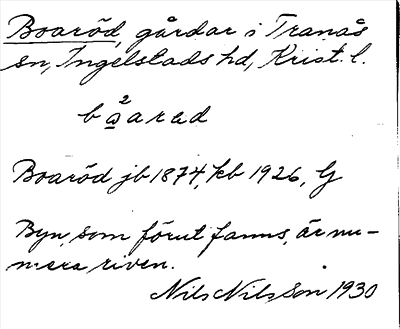 Boaröd, gårdar i Tranås
sn, Ingelstads hd, Krist. l.
2
båarad
Boaröd jb 1874, kb 1926, G
Byn, som förut fanns, är nu-
mera riven.
Nils Nilsson 1930